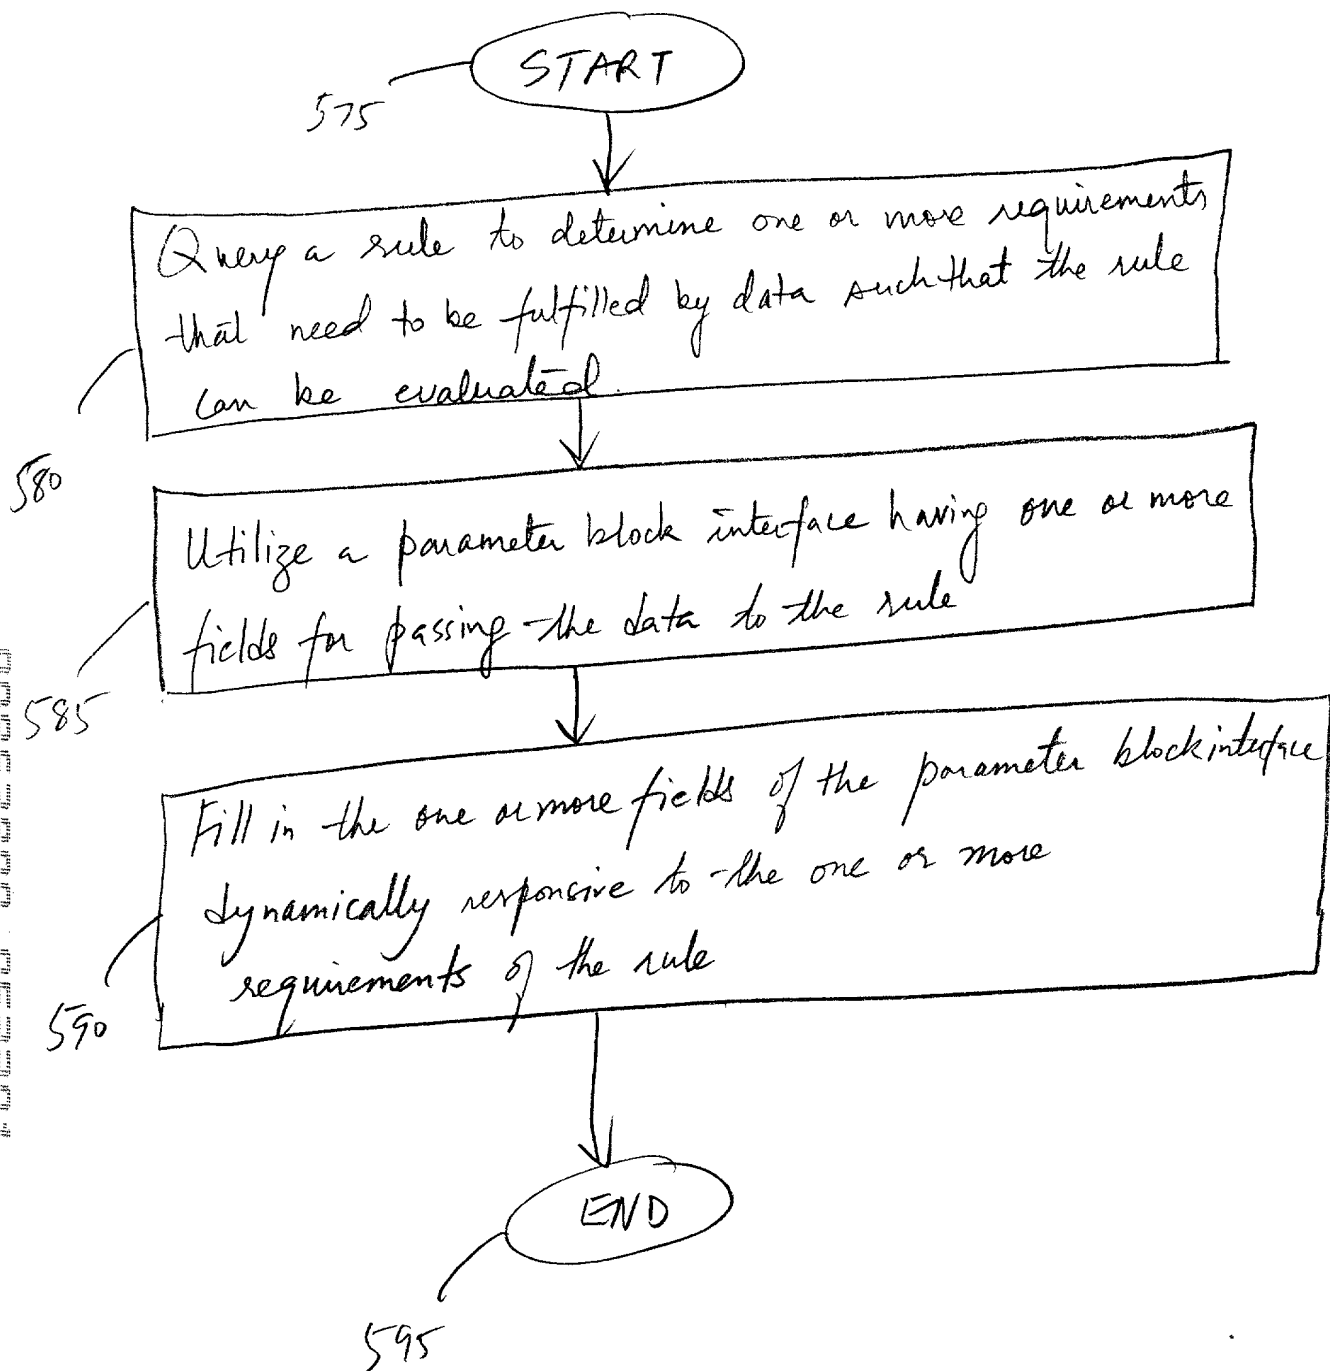 START
575
Query a rule to determine one or more requirements
that need to be fulfilled by data such that the rule
can be evaluated.
580
Utilize a parameter block interface having one or more
fields for passing the data to the rule
585
Fill in the one or more fields of the parameter block interface
dynamically responsive to the one or more
requirements of the rule
590
END
595